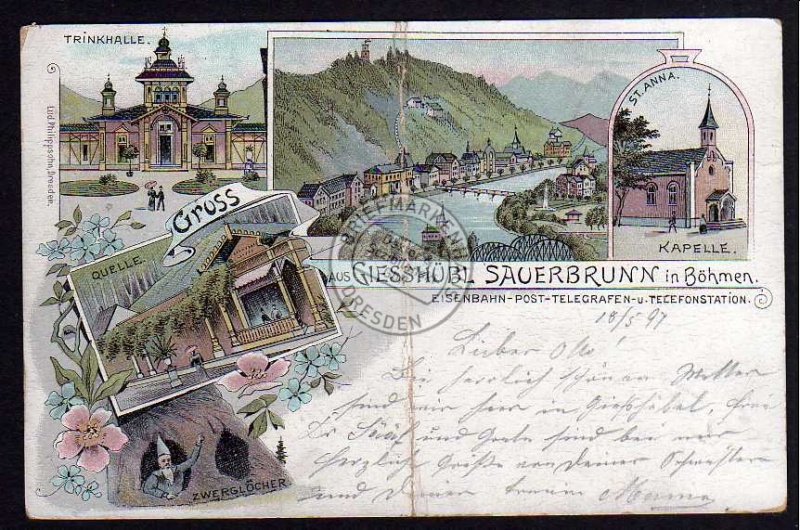 TRINKHALLE.
Lud. Philippsohn, Dresden.
ST. ANNA.
KAPELLE.
Gruss
QUELLE.
AUS GIESSHÜBL SAUERBRUNN in Böhmen.
EISENBAHN-POST-TELEGRAFEN-u. TELEFONSTATION.
ZWERGLÖCHER
BRIEFMARKEN
DRESDEN
18/5 97
Lieber Otto!
Bei herrlich schönem Wetter
sind wir hier in Giesshübel,
Dr und Grete sind bei mir
Herzlich Grüße von Deiner Schwester
und Deiner treuen Mama